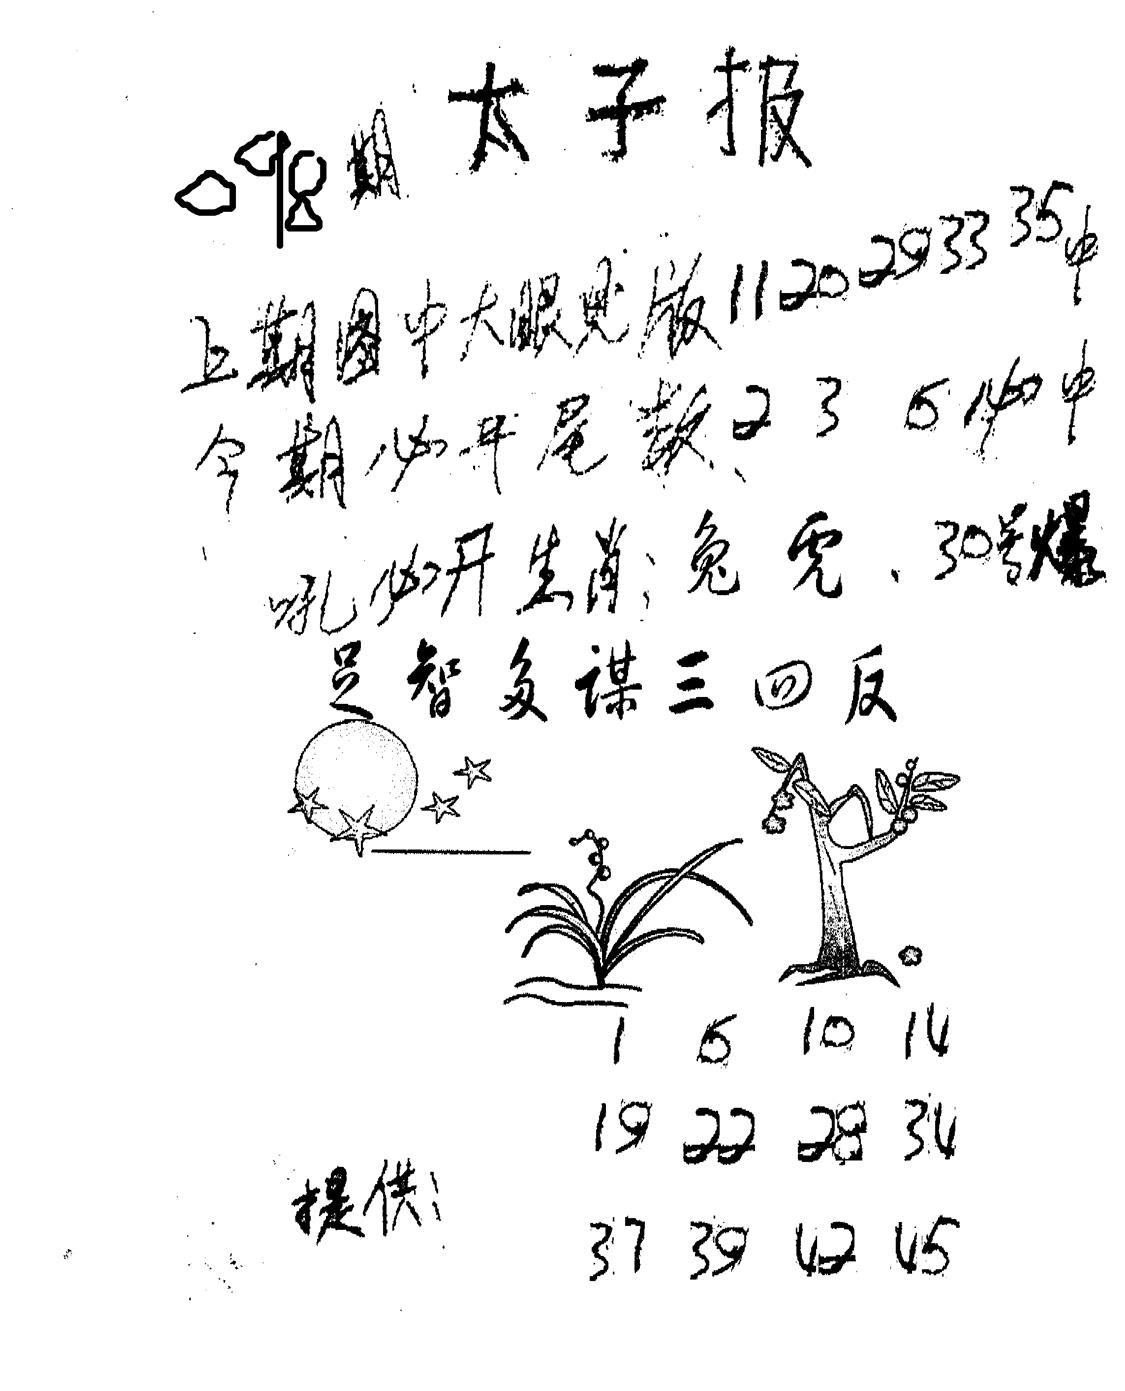 太子报
098期
上期图中大眼见版11 20 29 33 35中
今期必开尾数、2 3 6必中
吼必开生肖:兔虎、30号爆
足智多谋三四反
1 6 10 14
19 22 28 34
提供:
37 39 42 45